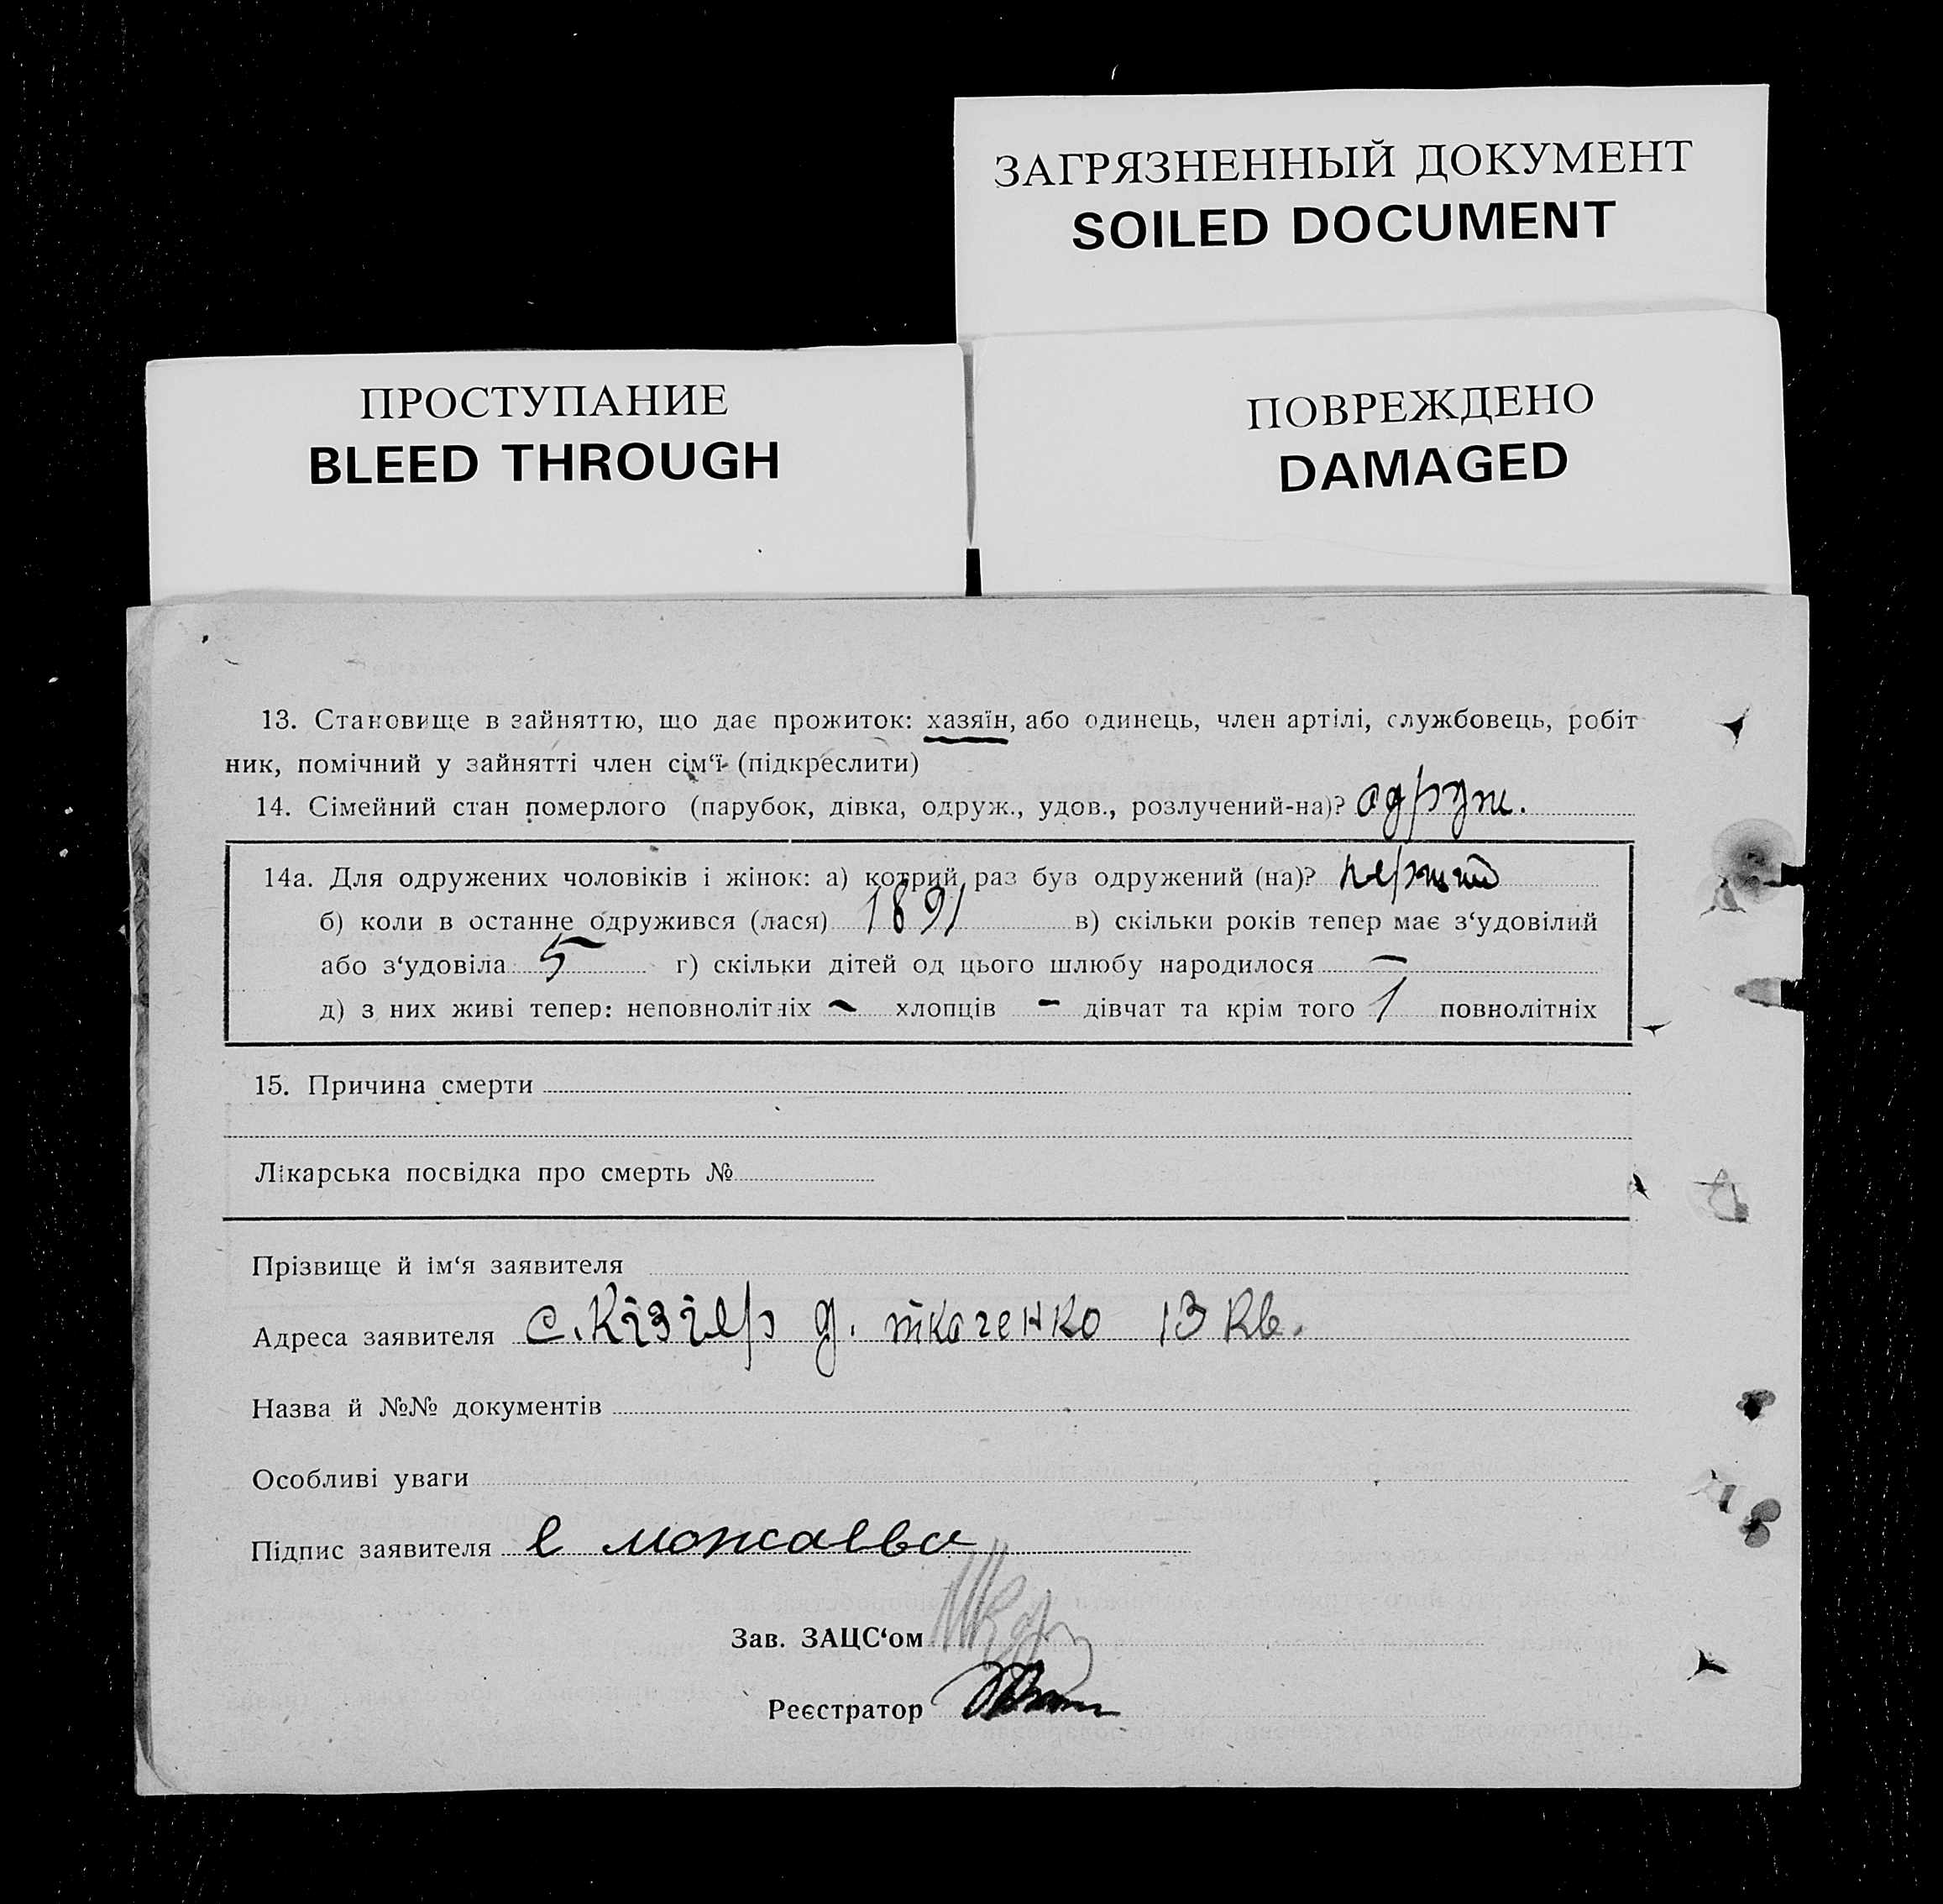 ЗАГРЯЗНЕННЫЙ ДОКУМЕНТ
SOILED DOCUMENT
ПРОСТУПАНИЕ
BLEED THROUGH
ПОВРЕЖДЕНО
DAMAGED
13. Становище в зайняттю, що дає прожиток: хазяїн, або одинець, член артілі, службовець, робіт
ник, помічний у зайнятті член сім‘ї (підкреслити)
14. Сімейний стан померлого (парубок, дівка, одруж., удов., розлучений-на)? одруж.
14а. Для одружених чоловіків і жінок: а) котрий раз був одружений (на)? перший
б) коли в останне одружився (лася) 1891 в) скільки років тепер має з‘удовілий
або з‘удовіла 5 г) скільки дітей од цього шлюбу народилося —
д) з них живі тепер: неповнолітніх - хлопців - дівчат та крім того 1 повнолітніх
15. Причина смерти
Лікарська посвідка про смерть №
Прізвище й ім‘я заявителя
Адреса заявителя с. Кізіяр д. ткаченко 13 кв.
Назва й №№ документів
Особливі уваги
Підпис заявителя е можаева
Зав. ЗАЦС‘ом
Реєстратор